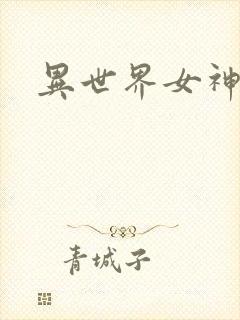 異世界女神
青城子